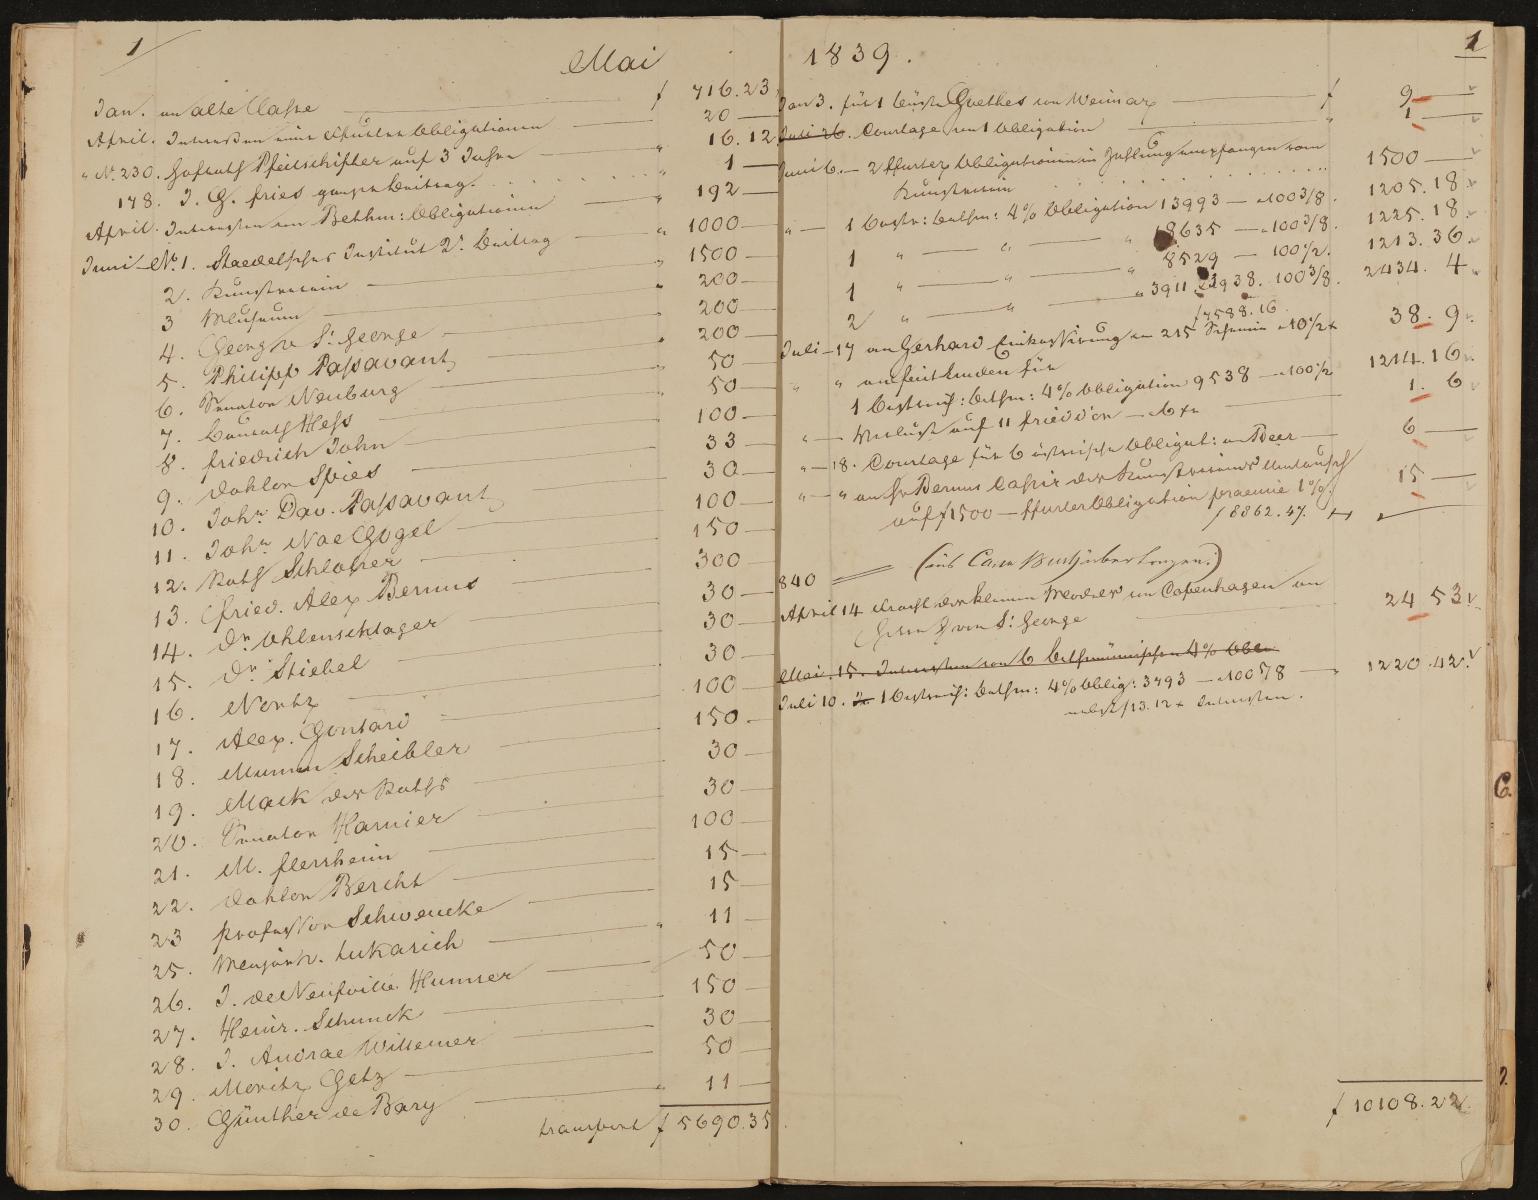 1
Mai
Jan. an alte Casse — f 716.23
April. Interessen einer Obligationen — 20 —
" No. 230. Hofrath Pfeilschifter auf 3 Jahre — " 16.12
178. J. G. Fries ganzer Beitrag. " 1 —
April. Interessen von Bethm: Obligationen — " 192 —
Juni — No. 1. Staedelsches Institut 2r. Beitrag — " 1000 —
2. Kunstverein — " 1500 —
3 Museum — " 200 —
4. George v. St. George — " 200 —
5. Philipp Passavant — " 200 —
6. Senator Neuburg — " 50 —
7. Baurath Hess — " 50 —
8. Friedrich John — 100 —
9. Doktor Spies — 33 —
10. John. Dav. Passavant — 30 —
11. John. Noe Gogel — 100 —
12. Rath Schlosser — 150 —
13. Fried. Alex Bernus — 300 —
14. Dr. Ohlenschlager — 30 —
15. Dr. Stiebel — 30 —
16. Nertz — 30 —
17. Alex. Gontard — 100 —
18. Mumm Scheibler — 150 —
19. Mack des Raths — 30 —
20. Senator Harnier — 30 —
21. M. Flersheim — 100 —
22. Doktor Bercht — 15 —
23 Professor Schwencke — 15 —
25. Lukasich — " 11 —
26. J. de Neufville Humser — 50 —
27. Heinr. Schunck — 150 —
28. J. Andrae Willemer — 30 —
29. Moritz Getz — 50 —
30. Günther de Bary — " 11 —
transport f 5690.35
1839.
1
Jan 3. für 1 Büste Goethes von Weimar — f 9 —
Juni 26. Courtage von 1 Obligation — " 1 —
Juni 6. — 2 Obligationen in Zahlung empfangen vom
Kunstverein 1500 —
" — 1 Oestr: Bethm: 4% Obligation 13993 — a 100 3/8. 1205.18
1 " — " — " 8635 — a 100 3/8. 1225.18
1 " — " — " 8529 — 100 1/2. 1213.36
2 " — " — " 3911. 3938. 100 3/8. 2434. 4
f 7588.16
Juli — 17 an Gerhard Einkassirung von 215 Scheinen a 10 1/2 x 38. 9
" " an für
1 Oestreich: Bethm: 4% Obligation 9538 — a 100 1/2 1214.16
" — Verlust auf 11 Fried d'or — 6 xr 1. 6
" — 18. Courtage für 6 östreichische Obligat: an Beer — 6 —
" — " an Hr Bernus Cassir des Kunstvereins Umtausch
auf f 1500 — Obligation praemie 1%. 15 —
f 8862.47.
840 (ins Cassa Buch übertragen:)
April 14 Fracht der kleinen Modelle von Copenhagen an
Herrn G von St. George — 24 53
Mai. 15. Interessen von 6 Bethmännischen 4% Obli
Juli 10. 1 Oestreich: Bethm: 4% Oblig: 3793 — a 100 7/8 — 1220.42
nebst f 13.12 x Interessen.
f 10108.22.
C.